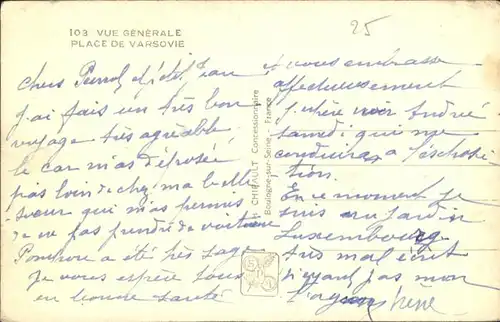 103 VUE GÉNÉRALE
PLACE DE VARSOVIE
25
Chers et petit Jean
j'ai fais un très bon
voyage très agréable
le car m'as déposée
pas loin de chez ma belle
sœur qui m'as permis
de ne pas prendre de voiture
Pompone a été très sage
Je vous espère tous
en bonne santé
CHIRAULT Concessionnaire
Boulogne-sur-Seine, France
& vous embrasse
affectueusement
J'espère voir André
samedi qui me
conduira a
tion.
En ce moment je
suis au jardin
Luxembourg
très mal écrit
n'ayant pas mon
Irène